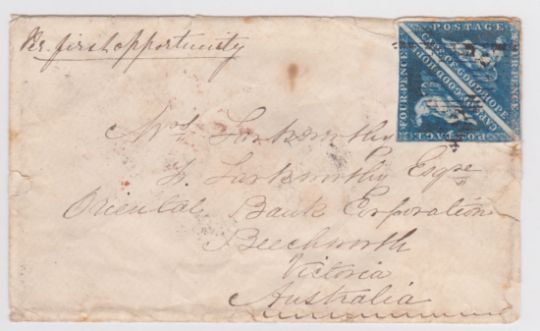 Per. first opportunity
POSTAGE
FOUR PENCE
CAPE OF GOOD HOPE
CAPE OF GOOD HOPE
FOUR PENCE
POSTAGE
Mrs Larkworthy
F. Larkworthy Esqre
Oriental Bank Corporation
Beechworth
Victoria
Australia